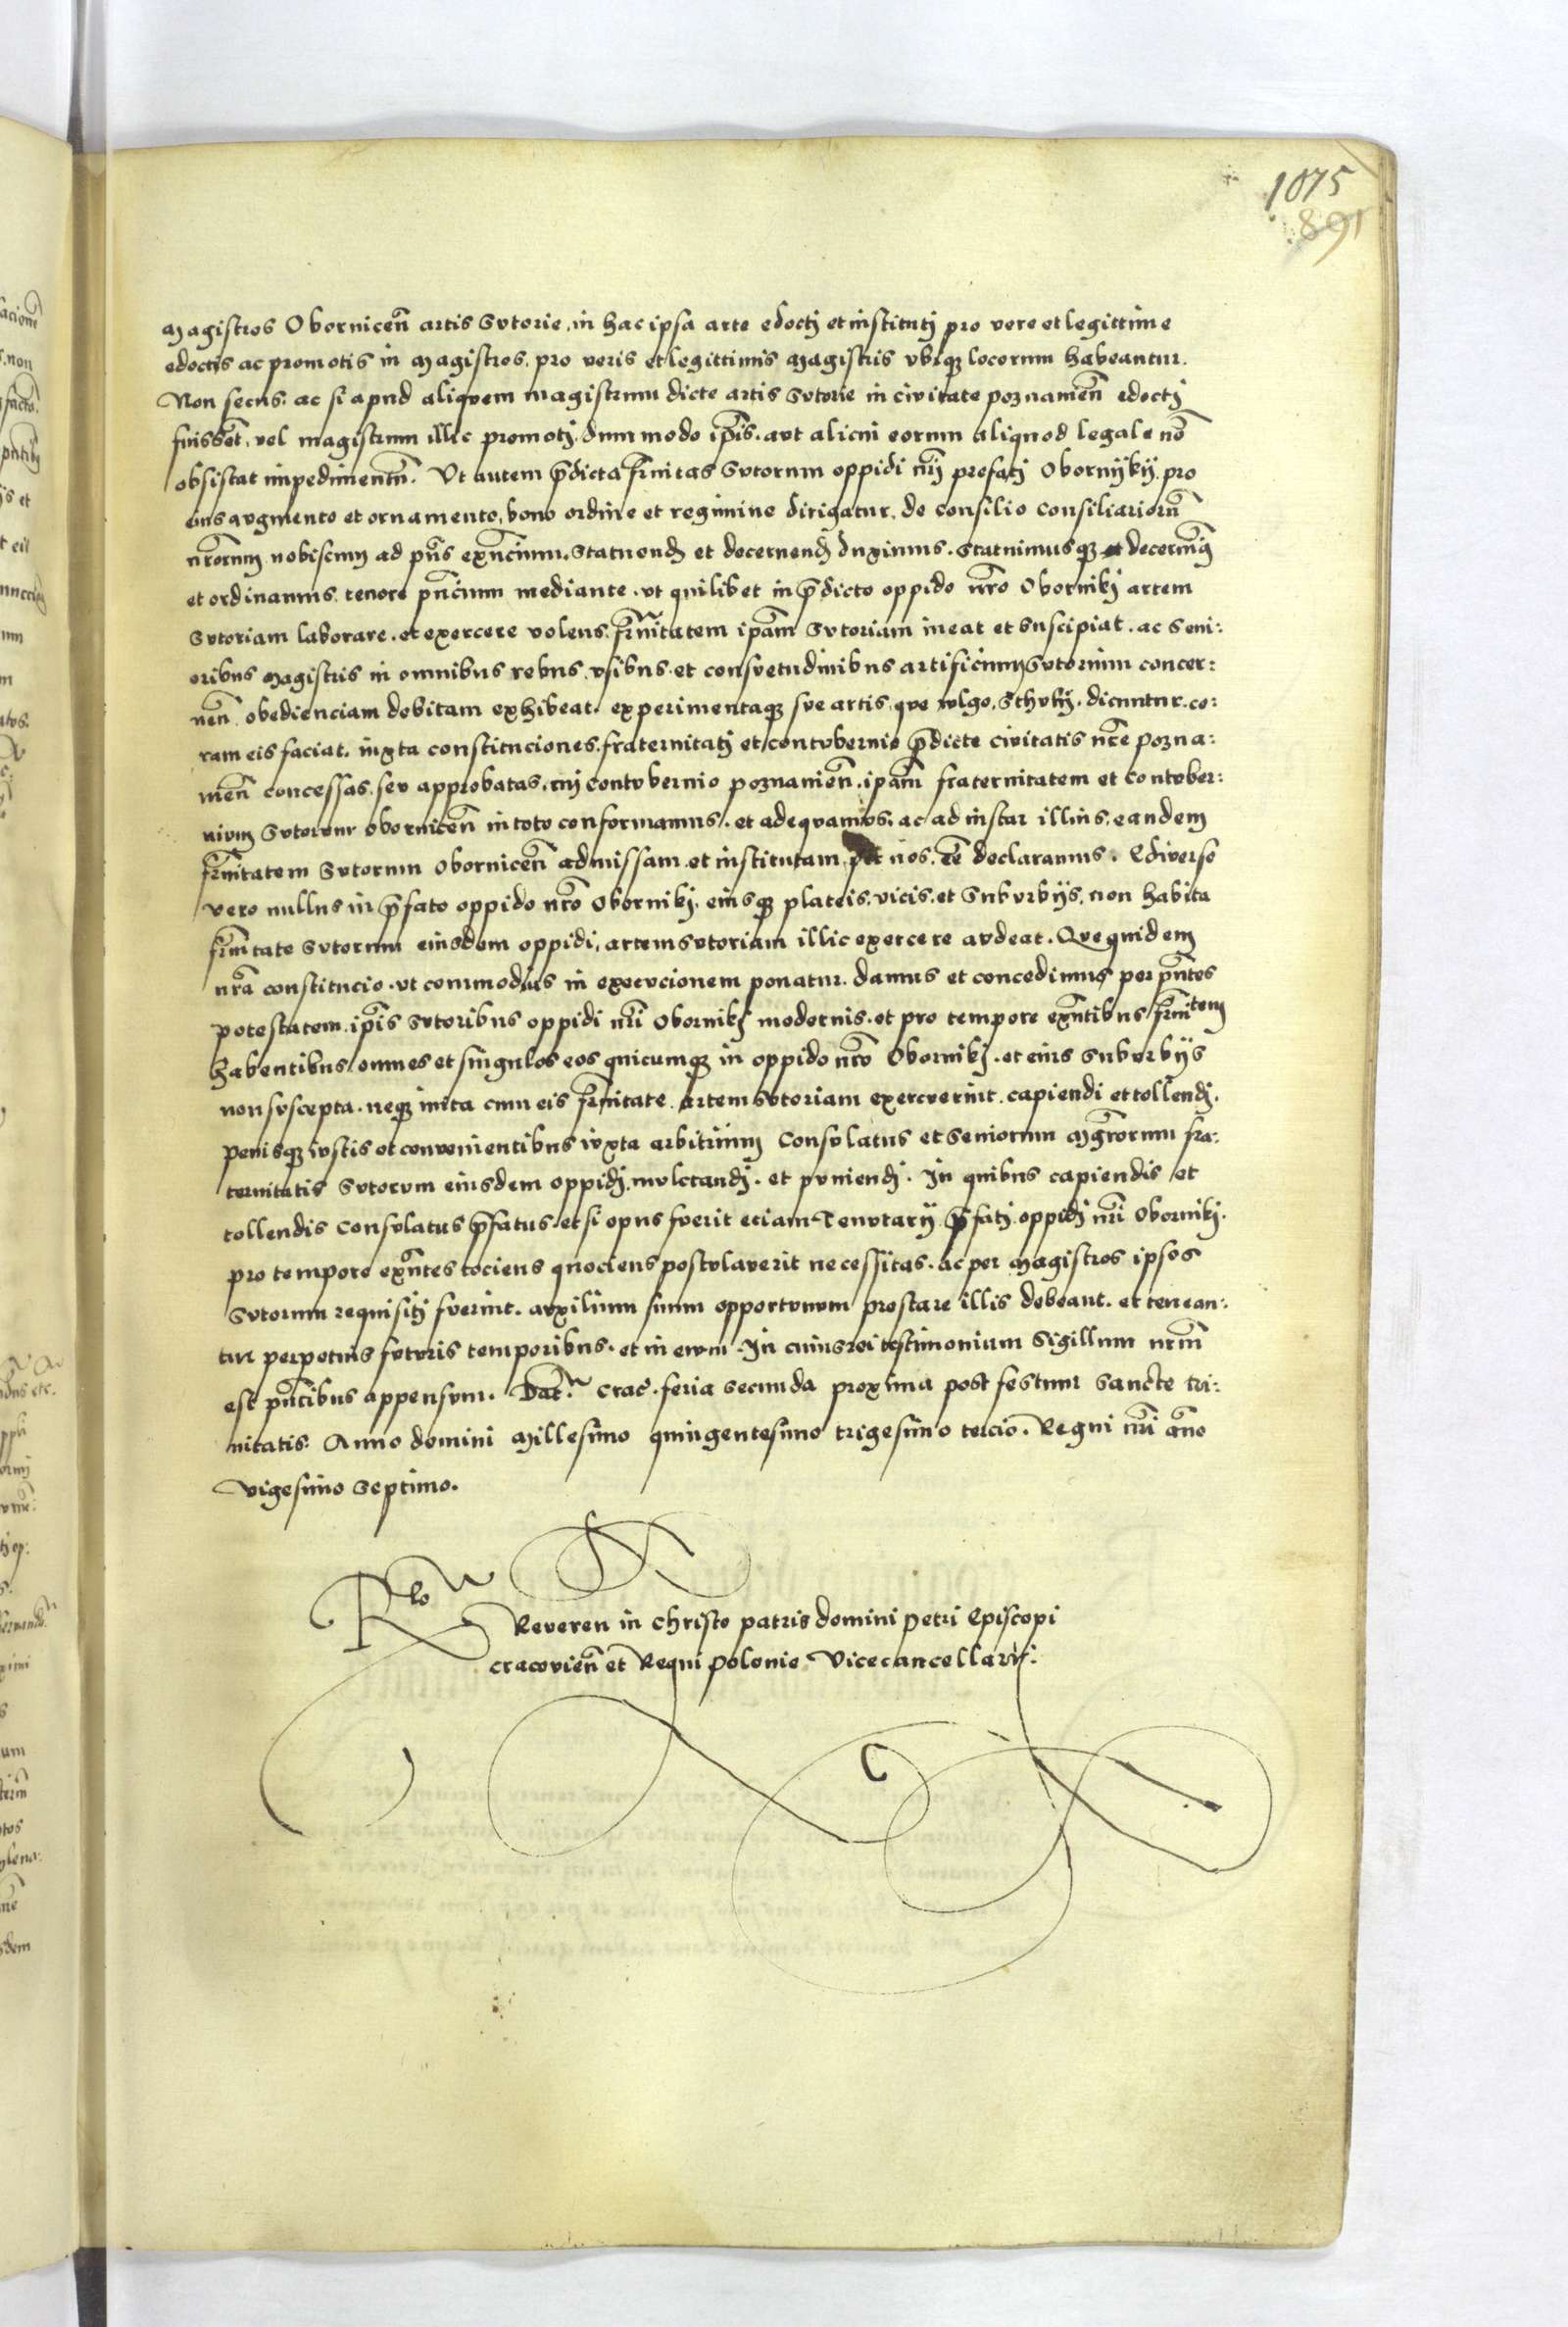 1075
891
Magistros Obornicen̄ artis Sutorie, in hac ipsa arte edocti et instituti pro vere et legittime
edoctis ac promotis in Magistros, pro veris et legittimis Magistris ubiqꝫ locorum habeantur.
Non secus ac si apud aliquem magistrum dicte artis Sutorie in civitate poznanien̄ edocti
fuissēt, vel magistrum illic promoti, dummodo ip̄is aut alicui eorum aliquod legale nō
obsistat impedimentū. Ut autem p̄dicta fr̄nitas Sutorum oppidi nr̄i prefati Obornijkij pro
eius augmento et ornamento, bono ordine et regimine dirigatur, de consilio consiliariorū
nr̄orum nobiscum ad pn̄s exn̄cium. Statuendi et decernendi duximus. Statuimusqꝫ et decernimꝯ
et ordinamus tenore pn̄cium mediante, ut quilibet in p̄dicto oppido nr̄o Oborniki artem
Sutoriam laborare, et exercere volens, fr̄nitatem ipām Sutoriam ineat et suscipiat, ac Seni:
oribus Magistris in omnibus rebus, usibus, et consuetudinibus artificium Sutorium concer:
nen̄ obedienciam debitam exhibeat, experimentaqꝫ sue artis, que vulgo, Sthuki, dicuntur, co:
ram eis faciat, iuxta constituciones, fraternitati et contubernio p̄dicte civitatis nr̄e pozna:
nien̄ concessas, seu approbatas, cui contubernio poznanien̄, ipām fraternitatem et contuber:
nium Sutorum obornicen̄ in toto conformamus, et adequamus, ac ad instar illius, eandem
fr̄nitatem Sutorum Obornicen̄ admissam et institutam per nos, eē declaramus. Ediverso
vero nullus in p̄fato oppido nr̄o Oborniki, eiusqꝫ plateis, vicis, et Suburbijs, non habita
fr̄nitate Sutorum eiusdem oppidi, artem sutoriam illic exercere audeat. Que quidem
nr̄a constitucio, ut commodius in execucionem ponatur, damus et concedimus per pn̄tes
potestatem, ip̄is Sutoribus oppidi nr̄i Oborniki modernis, et pro tempore exn̄tibus fr̄nitem
habentibus, omnes et singulos eos quicumqꝫ in oppido nr̄o Oborniki, et eius Suburbijs
non suscepta, neqꝫ inita cum eis fr̄nitate, artem Sutoriam exercuerint, capiendi et tollendi,
penisqꝫ iustis et convenientibus iuxta arbitrium Consulatus et Seniorum Mgr̄orum fra:
ternitatis Sutorum eiusdem oppidi, mulctandi, et puniendi. In quibus capiendis et
tollendis Consulatus p̄fatus, et si opus fuerit eciam Tenutarij p̄fati oppidi nr̄i Oborniki,
pro tempore exn̄tes tociens quociens postulaverit necessitas, ac per Magistros ipsos
Sutorum requisiti fuerint, auxilium suum opportunum prestare illis debeant, et tenean:
tur perpetuis futuris temporibus, et in evum. In cuius rei testimonium Sigillum nr̄um
est pn̄tibus appensum. Dat̄. Crac̄. feria secunda proxima post festum Sancte tri:
nitatis. Anno domini Millesimo quingentesimo trigesimo tercio. Regni nr̄i āno
vigesimo septimo.
Rlo
Reveren in Christo patris domini Petri Episcopi
Cracovien̄ et Regni Polonie Vicecancellarij.